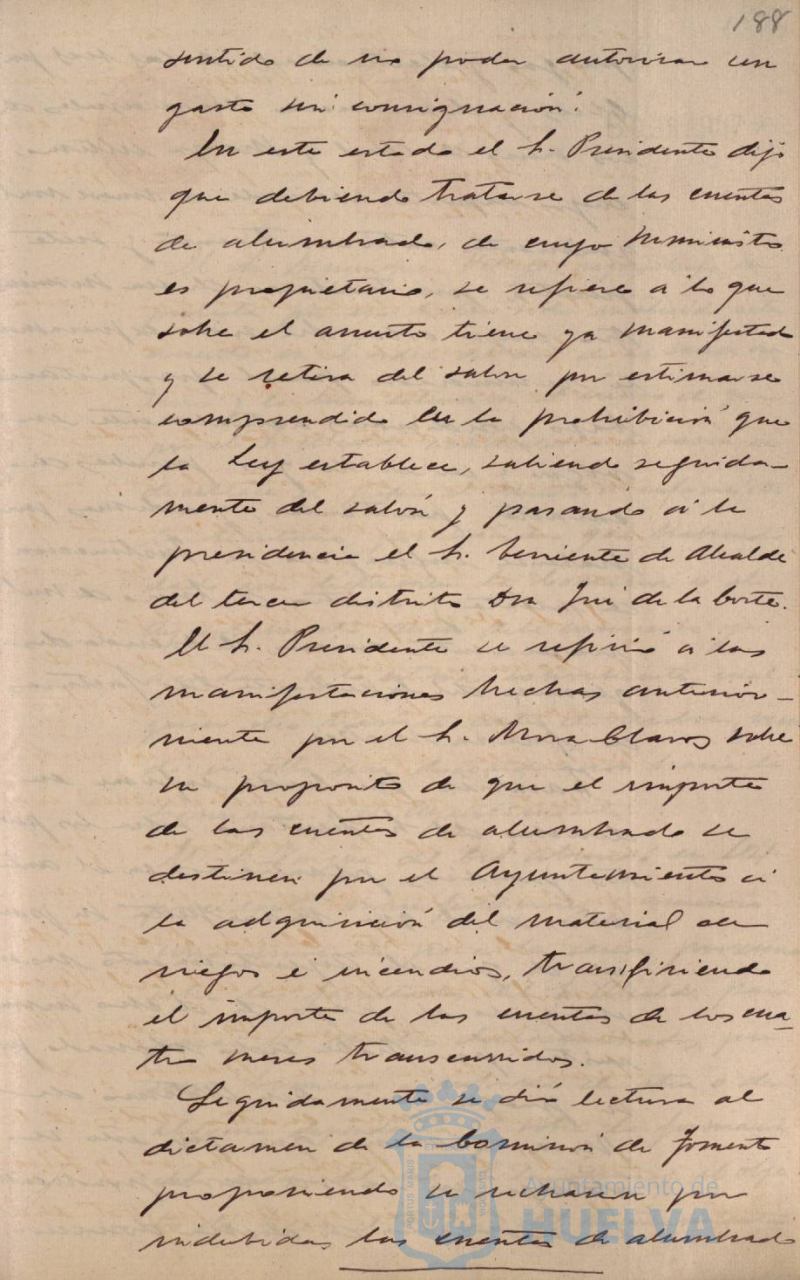 188
sentido de no poder autorizar un
gasto sin consignación.
En este estado el S. Presidente dijo
que debiendo tratarse de las cuentas
de alumbrado, de cuyo suministro
es propietario, se refiere á lo que
sobre el asunto tiene ya manifestado
y se retira del salon por estimarse
comprendido en la prohibición que
la Ley establece, saliendo seguida-
mente del salón y pasando á la
presidencia el S. Teniente de Alcalde
del tercer distrito Don José de la Corte.
El S. Presidente se refirió á las
manifestaciones hechas anterior-
mente por el S. Mora Claros sobre
su proposito de que el importe
de las cuentas de alumbrado se
destinen por el Ayuntamiento á
la adquisición del material de
riegos é incendios, transfiriendo
el importe de las cuentas de los cua-
tro meses transcurridos.
Seguidamente se dió lectura al
dictamen de la Comisión de Fomento
proponiendo se rechacen por
indebidas las cuentas de alumbrado
Ayuntamiento de
HUELVA